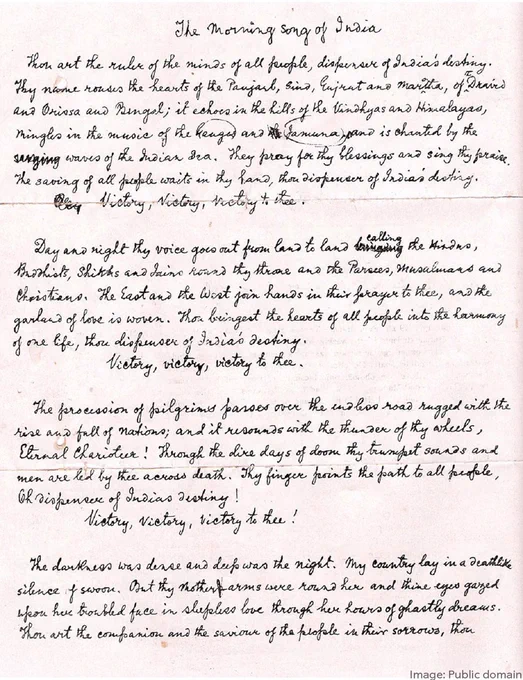 The Morning Song of India
Thou art the ruler of the minds of all people, dispenser of India's destiny.
Thy name rouses the hearts of the Punjab, Sind, Gujrat and Maratha, of Dravid
and Orissa and Bengal; it echoes in the hills of the Vindhyas and Himalayas,
mingles in the music of the Ganges and Jamuna, and is chanted by the
waves of the Indian Sea. They pray for thy blessings and sing thy praise.
The saving of all people waits in thy hand, thou dispenser of India's destiny.
Victory, Victory, Victory to thee.
Day and night thy voice goes out from land to land calling the Hindus,
Buddhists, Shikhs and Jains round thy throne and the Parsees, Musulmans and
Christians. The East and the West join hands in their prayer to thee, and the
garland of love is woven. Thou bringest the hearts of all people into the harmony
of one life, thou dispenser of India's destiny.
Victory, victory, victory to thee.
The procession of pilgrims passes over the endless road rugged with the
rise and fall of nations; and it resounds with the thunder of thy wheels,
Eternal Charioteer! Through the dire days of doom thy trumpet sounds and
men are led by thee across death. Thy finger points the path to all people,
Oh dispenser of India's destiny!
Victory, Victory, Victory to thee!
The darkness was dense and deep was the night. My country lay in a deathlike
silence of swoon. But thy mother arms were round her and thine eyes gazed
upon her troubled face in sleepless love through her hours of ghastly dreams.
Thou art the companion and the saviour of the people in their sorrows, thou
Image: Public domain